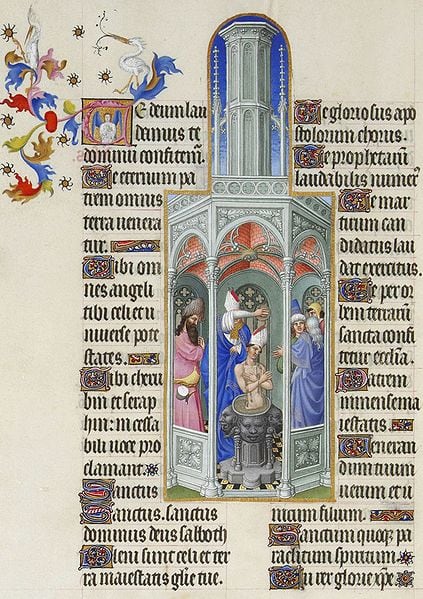 Te deum lau
damus te
dominū confitem̄.
Te eternum pa
trem omnis
terra uenera
tur.
Tibi om
nes angeli
tibi celi et u
niuerse pote
states.
Tibi cheru
bin et serap
hin: incessa
bili uoce pro
clamant.
Sanctus
Sanctus. sanctus
dominus deus sabboth
Pleni sunt celi et ter
ra maiestatis gl̄ie tue.
Te gloriosus apo
stolorum chorus.
Te prophetarū
laudabilis numer⁹
Te mar
tirum can
didatus lau
dat exercitus.
Te per or
bem terrarū
sancta confi
tetur ecclīa.
Patrem
inmense ma
iestatis.
Ueneran
dum tuum
uerum et u
nicum filium.
Sanctum quoq̄ pa
raclitum spiritum.
Tu rex glorie xp̄e.